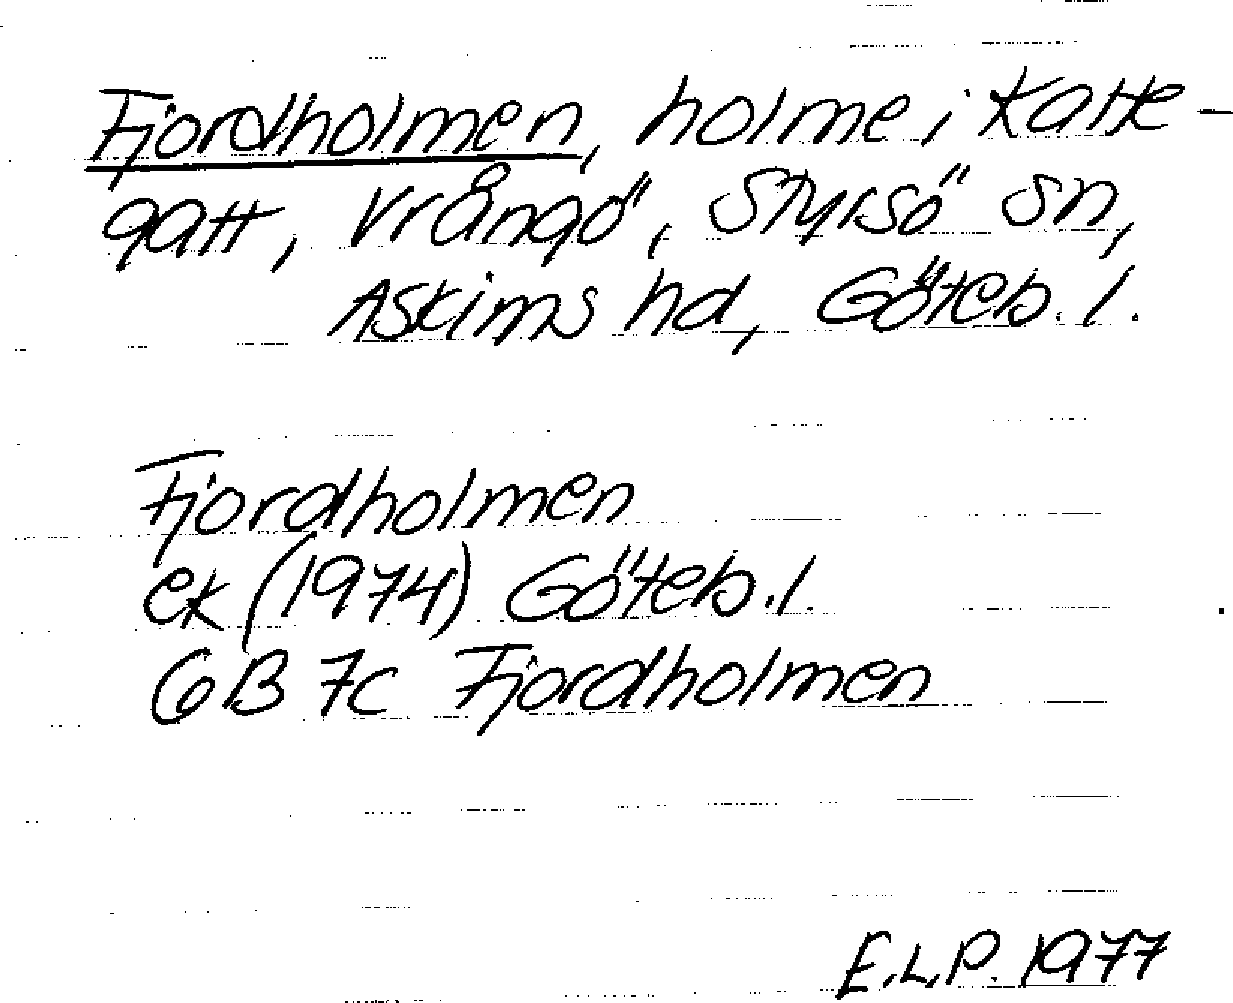 Fjordholmen, holme i Katte-
gatt, Vrångö, Styrsö sn,
Askims hd, Göteb. l.
Fjordholmen
ek (1974) Göteb. l.
6B 7c Fjordholmen
E.L.P. 1977